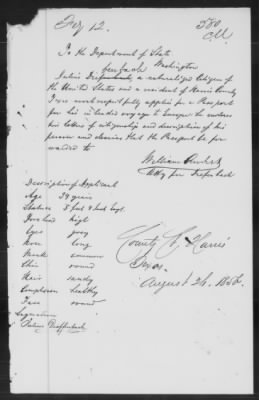 Fey 12.
580
To the Department of State
Washington
Julius a naturalized Citizen of
the United States and a resident of Harris County
Texas most respectfully applies for a Passport
for his intended voyage to Europe he encloses
his letters of citizenship and description of his
person and desires that the Passport be for
warded to
William
Atty for
Description of Applicant
Age 39 years
Stature 5 feet 8 inch Engl.
Forehead high
Eyes gray
Nose long
Mouth common
Chin round
Hair sandy
Complexion healthy
Face round
Signature
Julius
County of Harris
Texas.
August 26. 1856.